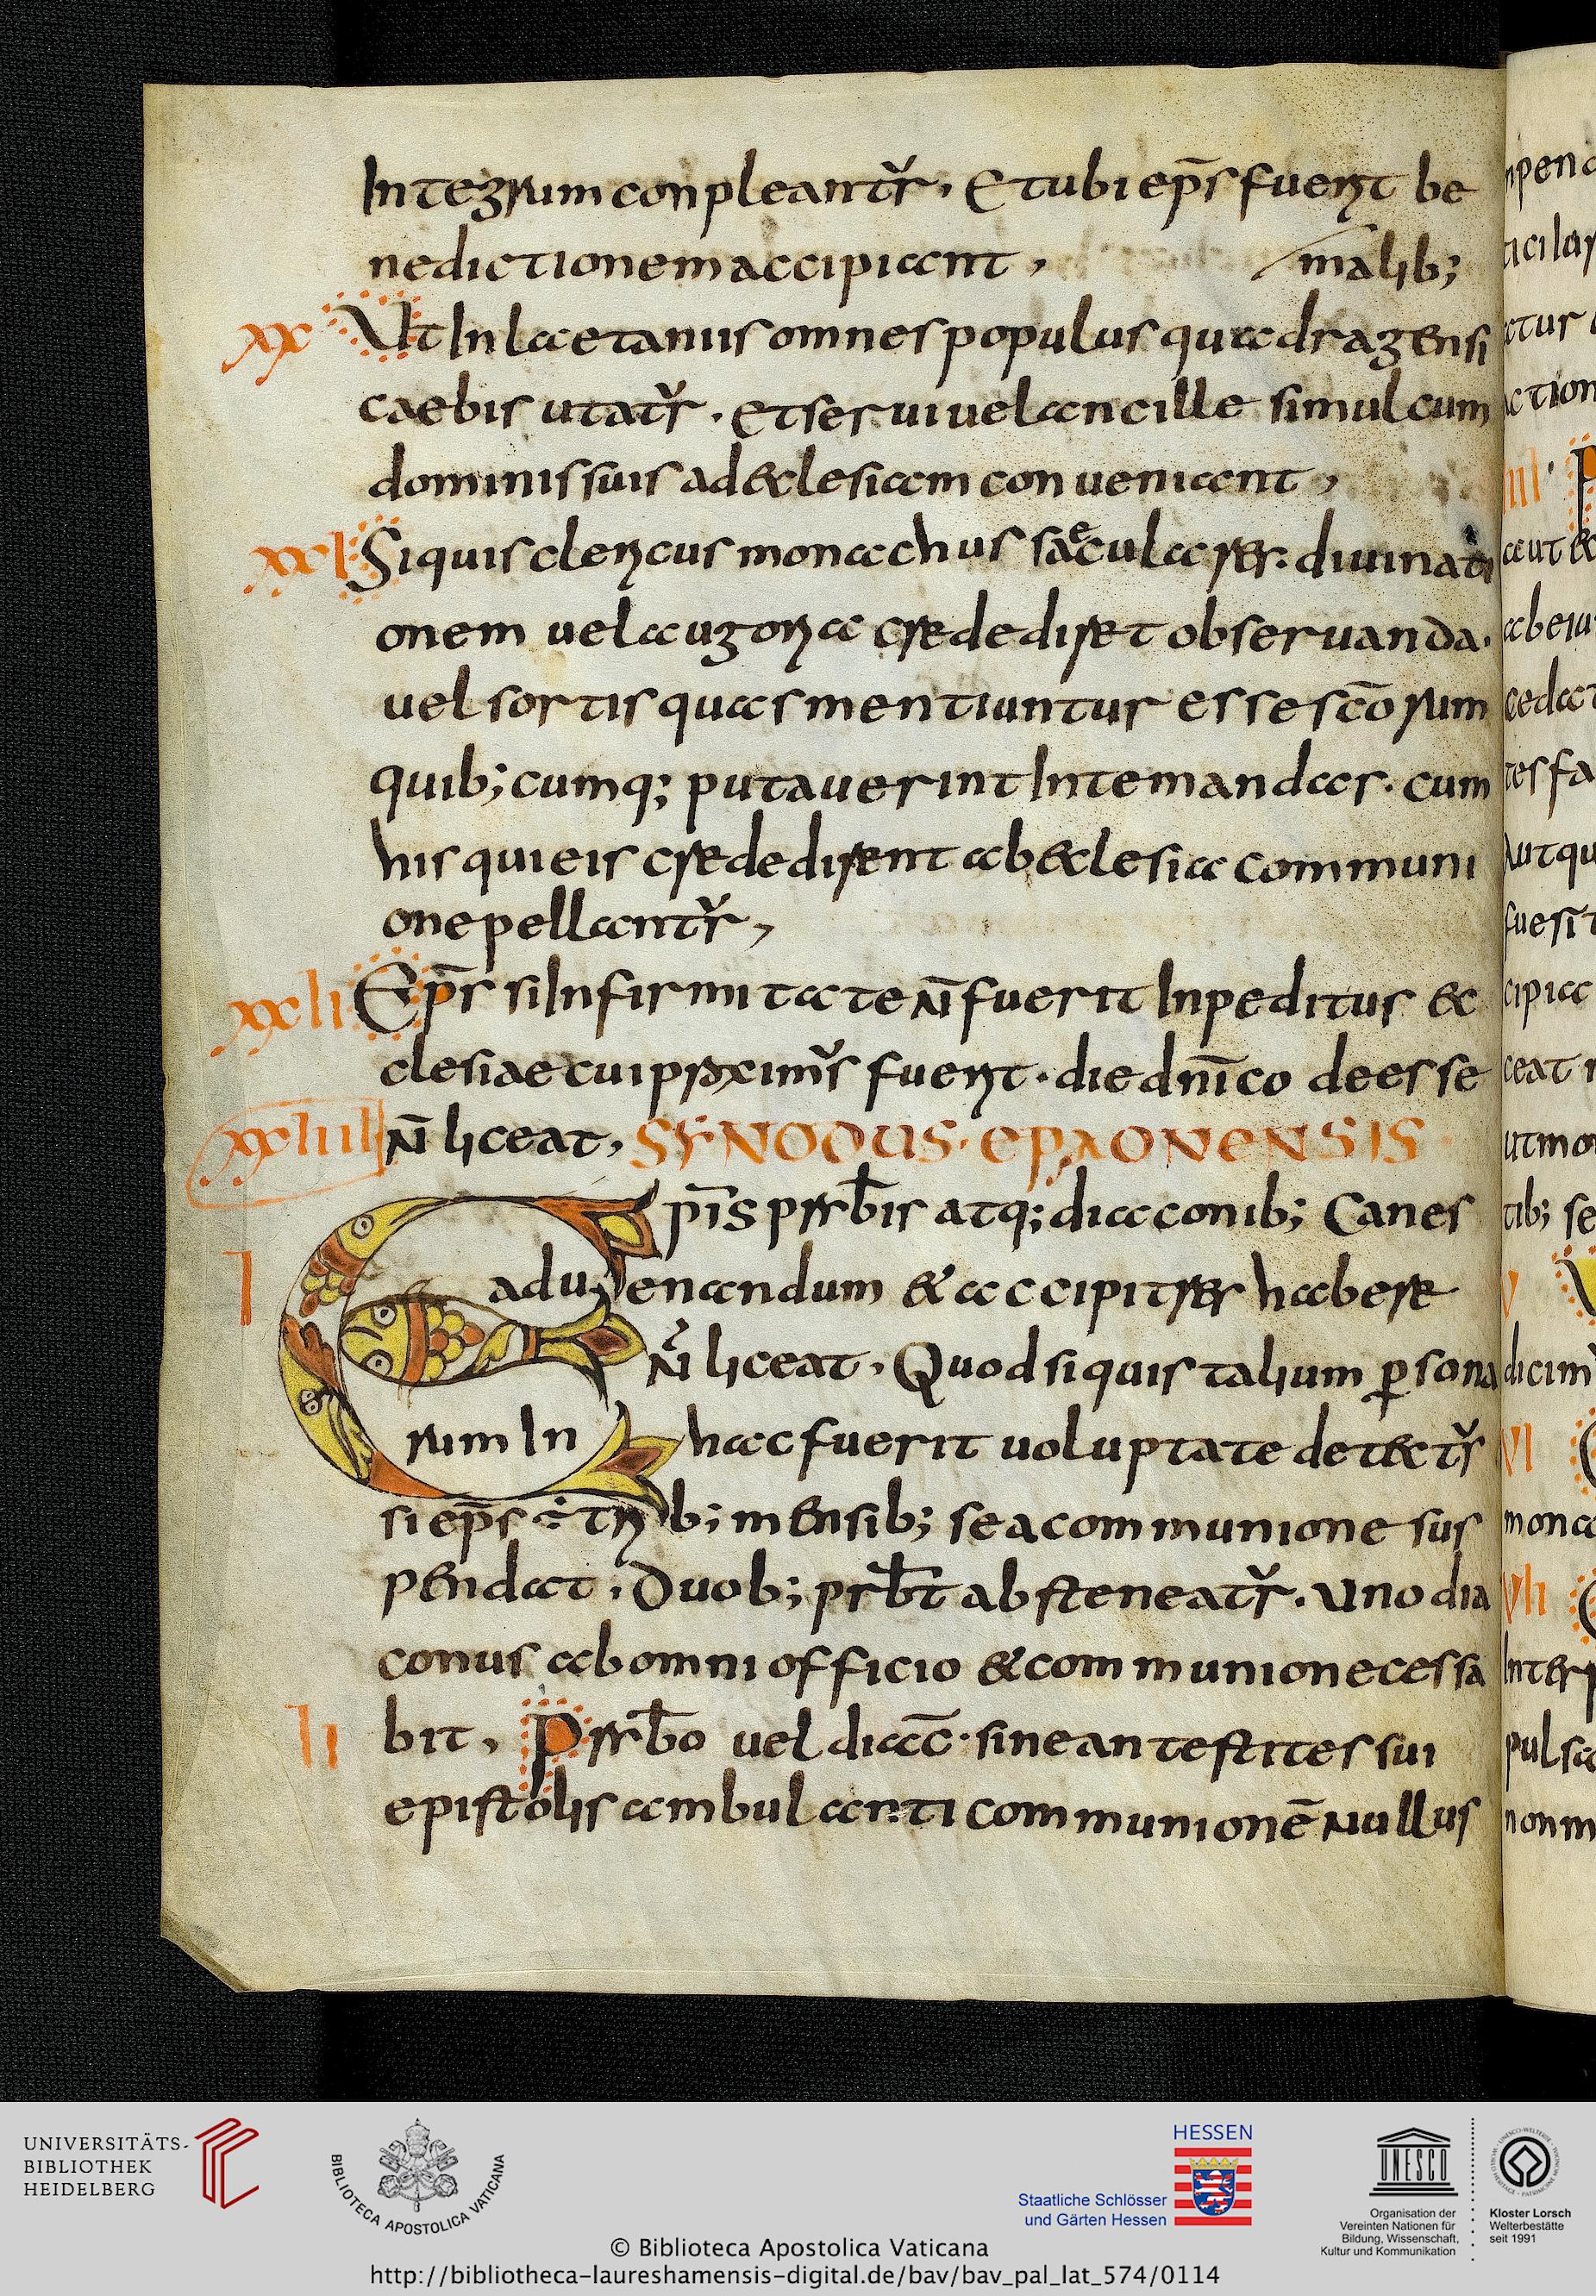 Integrum conpleantr̄. Et ubi ep̄s fuerit be
nedictionem accipiant,
malib;
xx Ut In laetaniis omnes populus quadragensi
caebis utatr̄. et serui uel ancille simul cum
dominis suis ad eclesiam conueniant,
xxI Siquis clericus monachus saecularis. diuinati
onem uel auguria crediderit obseruanda.
uel sortis quas mentiuntur esse sc̄orum
quib; cumq; putauerint Intemandas. cum
his qui eis crediderint ab eclesia communi
one pellantr̄,
xxII Ep̄s si Infirmitate n̄ fuerit Inpeditus ec
clesiae cui proximus fuerit. die dn̄ico deesse
xxIIII n̄ liceat, SYNODUS. EPAONENSIS
Ep̄is prb̄is atq; diaconib; Canes
I ad uenandum & accipitres habere
n̄ liceat. Quod si quis talium p̱sona
rum In hac fuerit uoluptate detectr̄
si ep̄s ÷ trib; mensib; se a communione sus
pendat. Duob; prb̄t absteneatr̄. Uno dia
conus ab omni officio & communione cessa
II bit. Prb̄o uel diac̄. sine antestites sui
epistolis ambulanti communionē nullus
npena
icilar
ctur
action
IIII P
aut &
abeiu
cedat
tes fa
Autqu
fuesit
cipia
ceat
utmo
tib; se
V
dicim
VI
mona
VII
Inter
pulsa
nonm
UNIVERSITÄTS-
BIBLIOTHEK
HEIDELBERG
BIBLIOTECA APOSTOLICA VATICANA
HESSEN
Staatliche Schlösser
und Gärten Hessen
UNESCO
Organisation der
Vereinten Nationen für
Bildung, Wissenschaft,
Kultur und Kommunikation
Kloster Lorsch
Welterbestätte
seit 1991
© Biblioteca Apostolica Vaticana
http://bibliotheca-laureshamensis-digital.de/bav/bav_pal_lat_574/0114